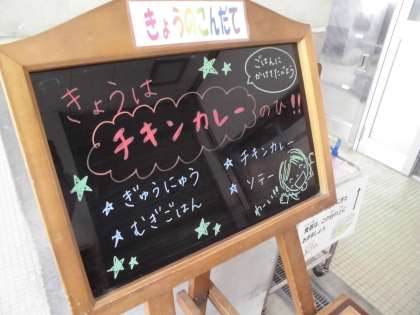 きょうのこんだて
ごはんに
かけてたべよう
きょうは
チキンカレーのひ!!
★ ぎゅうにゅう
★ むぎごはん
★ チキンカレー
★ ソテー
わーい!!